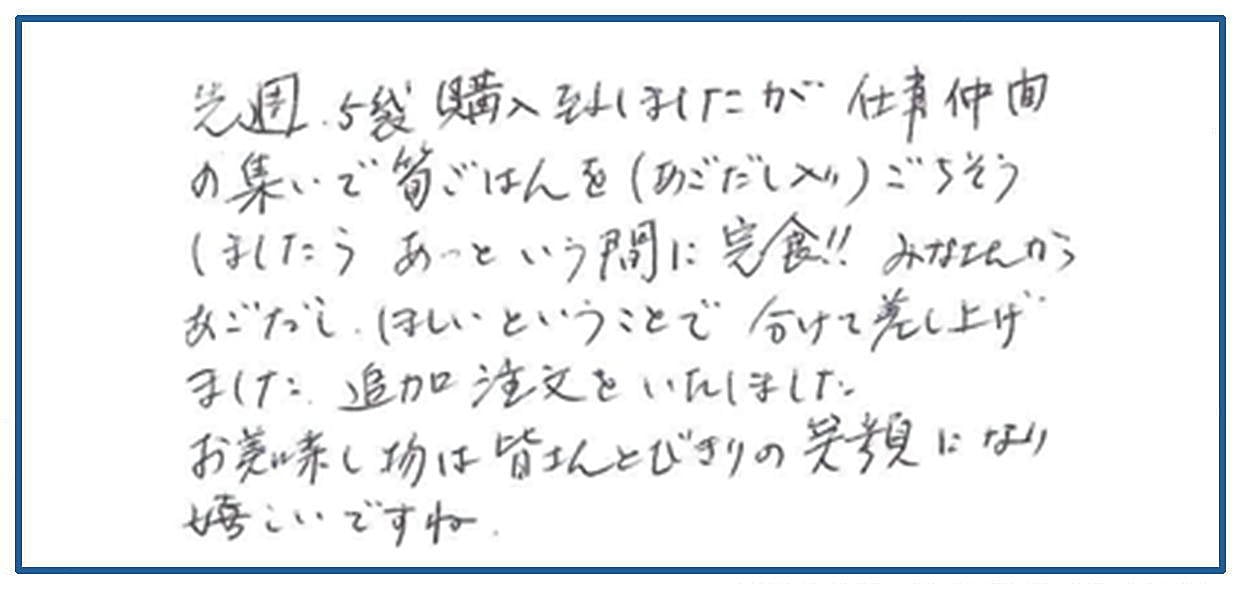 先週.5袋購入致しましたが仕事仲間
の集いで筍ごはんを(あごだし入り)ごちそう
しましたら あっという間に完食!! みなさんから
あごだし.ほしいということで 分けて差し上げ
ました.追加注文をいたしました.
お美味し物は皆さんとびきりの笑顔になり
嬉しいですね.